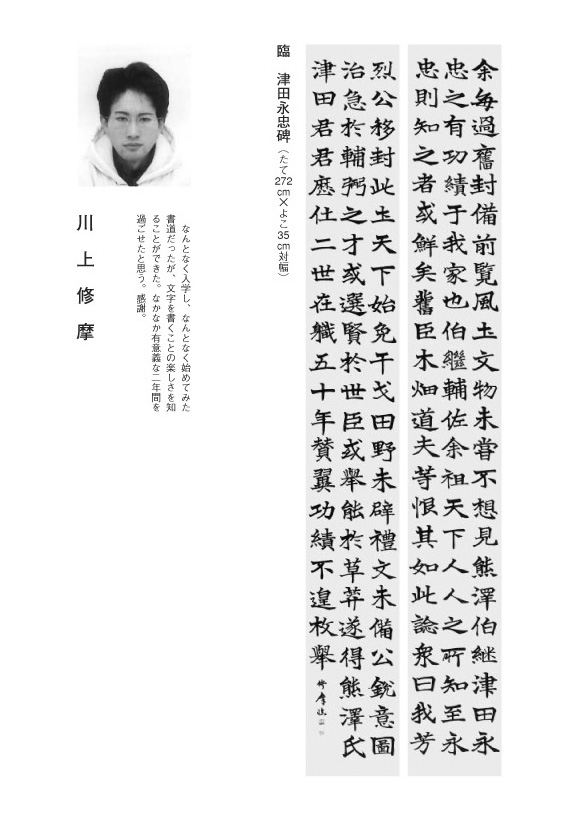 余每過舊封備前覽風土文物未嘗不想見熊澤伯継津田永
忠之有功績于我家也伯繼輔佐余祖天下人人之所知至永
忠則知之者或鮮矣舊臣木畑道夫等恨其如此諗衆曰我芳
烈公移封此土天下始免干戈田野未辟禮文未備公銳意圖
治急於輔弼之才或選賢於世臣或舉能於草莽遂得熊澤氏
津田君君歷仕二世在職五十年贊翼功績不遑枚舉
修摩臨
臨 津田永忠碑（たて272cm×よこ35cm対幅）
なんとなく入学し、なんとなく始めてみた
書道だったが、文字を書くことの楽しさを知
ることができた。なかなか有意義な二年間を
過ごせたと思う。感謝。
川上修摩